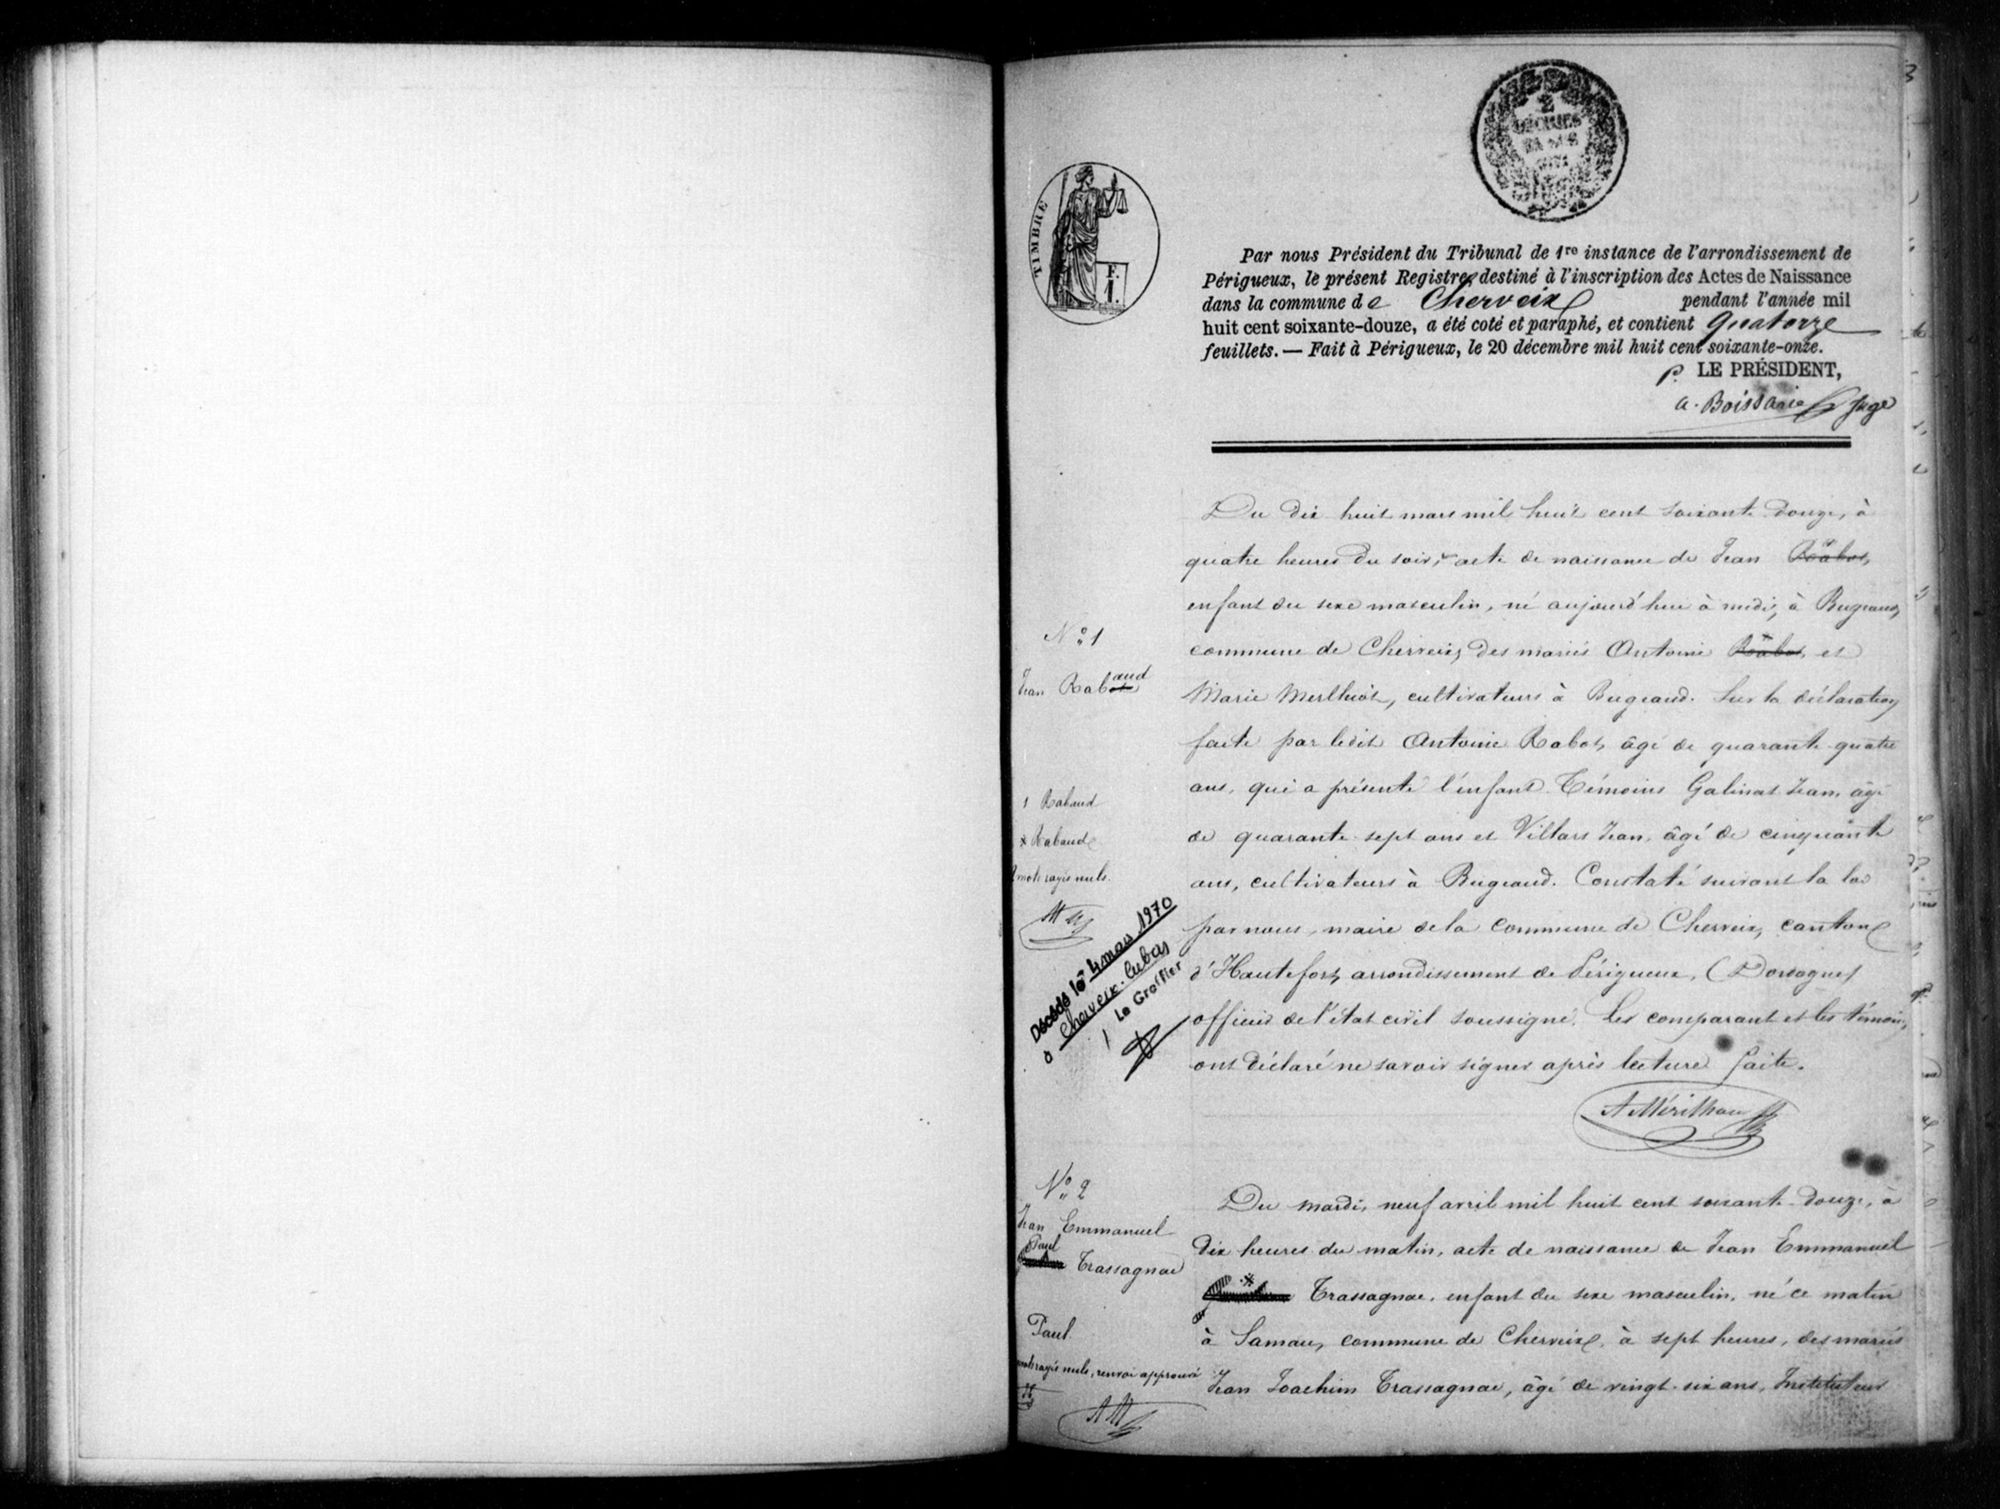 TIMBRE
F.
I.
2
DÉCIMES
EN SUS
Par nous Président du Tribunal de 1re instance de l'arrondissement de
Périgueux, le présent Registre, destiné à l'inscription des Actes de Naissance
dans la commune de Cherveix pendant l'année mil
huit cent soixante-douze, a été coté et paraphé, et contient quatorze
feuillets. — Fait à Périgueux, le 20 décembre mil huit cent soixante-onze.
P. LE PRÉSIDENT,
a. Boissarie Juge
N° 1
Jean Rabot aud
1 Rabaud
x Rabaud
2 mots rayés nuls.
Décédé le 4 mars 1970
à Cherveix-Cubas
Le Greffier
Du dix huit mars mil huit cent soixante douze, à
quatre heures du soir, acte de naissance de Jean Rabot,
enfant du sexe masculin, né aujourd'hui à midi, à Bugeaud,
commune de Cherveix, des mariés Antoine Rabot, et
Marie Merlhiot, cultivateurs à Bugeaud. Sur la déclaration
faite par ledit Antoine Rabot, âgé de quarante-quatre
ans, qui a présenté l'enfant. Témoins Galinat Jean, âgé
de quarante-sept ans et Villars Jean, âgé de cinquante
ans, cultivateurs à Bugeaud. Constaté suivant la loi
par nous, maire de la commune de Cherveix, canton
d'Hautefort, arrondissement de Périgueux, (Dordogne)
officier de l'état civil soussigné. Les comparant et les témoins,
ont déclaré ne savoir signer après lecture faite.
A Mérilhou
N° 2
Jean Emmanuel
Paul
Trassagnac
Paul
mots rayés nuls, renvoi approuvé
Du mardi, neuf avril mil huit cent soixante-douze, à
dix heures du matin, acte de naissance de Jean Emmanuel
Trassagnac, enfant du sexe masculin, né ce matin
à Samau, commune de Cherveix, à sept heures, des mariés
Jean Joachim Trassagnac, âgé de vingt-six ans, Instituteur